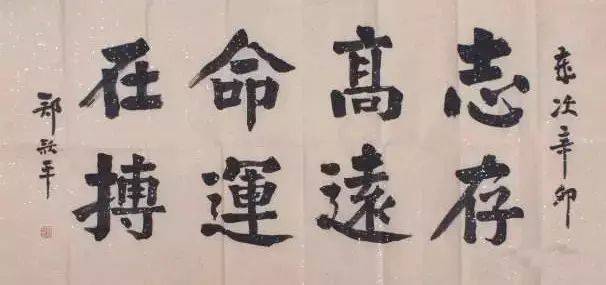 歲次辛卯
志存
高遠
命運
在搏
鄭